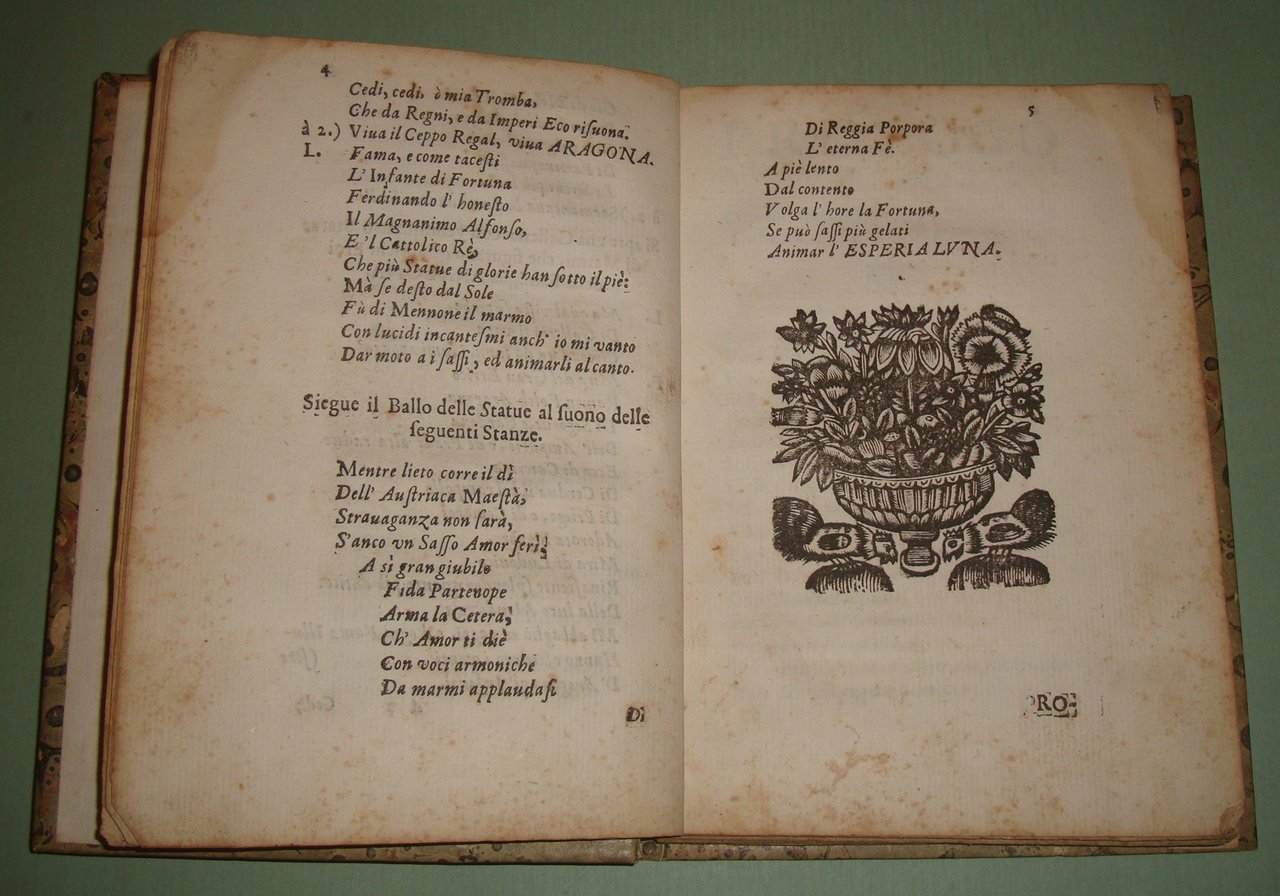 4
Cedi, cedi, ò mia Tromba,
Che da Regni, e da Imperi Eco riſuona.
à 2.) Viua il Ceppo Regal, viua ARAGONA.
L. Fama, e come taceſti
L' Infante di Fortuna
Ferdinando l' honeſto
Il Magnanimo Alfonſo,
E 'l Cattolico Rè,
Che più Statue di glorie han ſotto il piè:
Mà ſe deſto dal Sole
Fù di Mennone il marmo
Con lucidi incanteſmi anch' io mi vanto
Dar moto a i ſaſſi, ed animarli al canto.
Siegue il Ballo delle Statue al ſuono delle
ſeguenti Stanze.
Mentre lieto corre il dì
Dell' Auſtriaca Maeſtà,
Strauaganza non ſarà,
S'anco vn Saſſo Amor ferì;
A sì gran giubilo
Fida Partenope
Arma la Cetera;
Ch' Amor ti diè
Con voci armoniche
Da marmi applaudaſi
Di
5
Di Reggia Porpora
L' eterna Fè.
A piè lento
Dal contento
Volga l' hore la Fortuna,
Se può ſaſſi più gelati
Animar l' ESPERIA LVNA.
PRO-